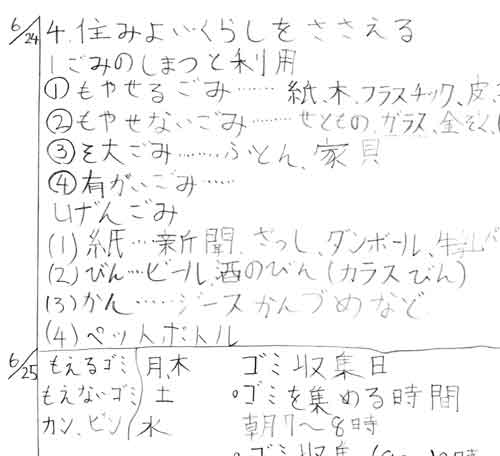 6/24 4.住みよいくらしをささえる
1ごみのしまつと利用
①もやせるごみ…… 紙、木、フラスチック、皮、
②もやせないごみ…… せともの、ガラス、金ぞく
③そ大ごみ……ふとん、家具
④有がいごみ……
しげんごみ
(1)紙…新聞、ざっし、ダンボール、牛乳パ
(2)びん…ビール、酒のびん(カラスびん)
(3)かん……ジースかんづめなど
(4)ペットボトル
6/25 もえるゴミ 月、木 ゴミ収集日
もえないゴミ 土 ○ゴミを集める時間
カン、ビン 水 朝7〜8時